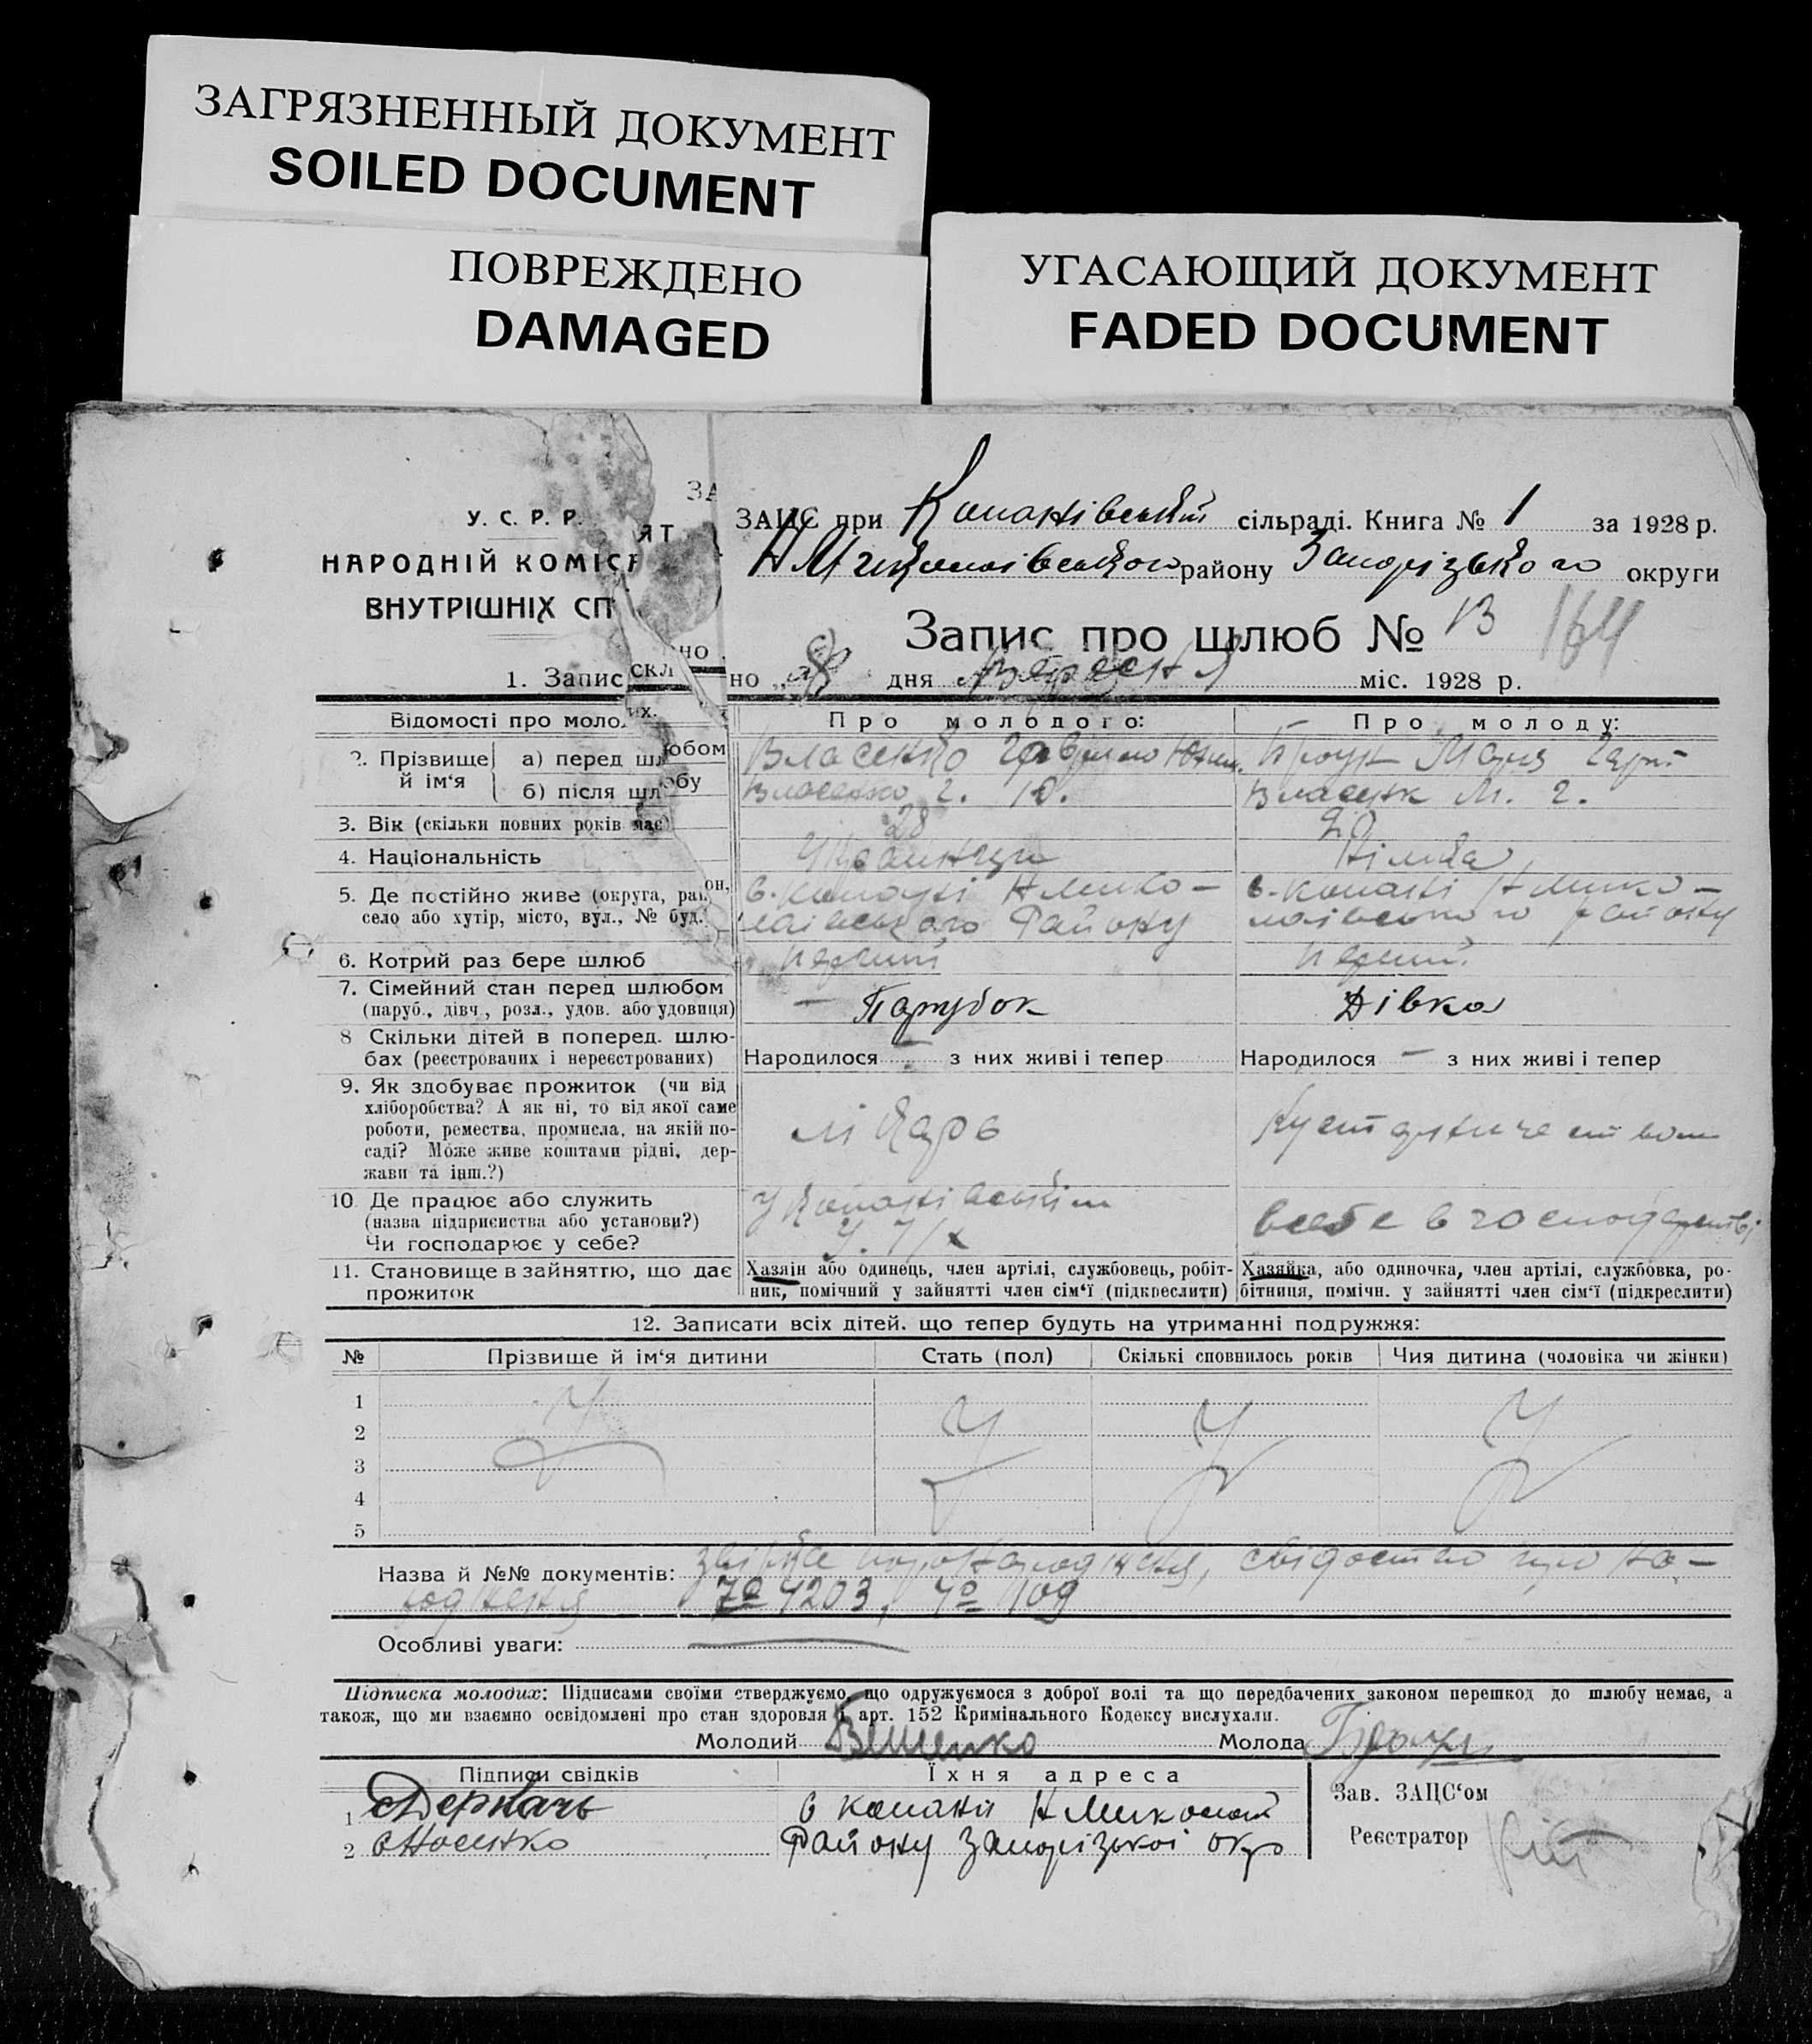 ЗАГРЯЗНЕННЫЙ ДОКУМЕНТ
SOILED DOCUMENT
ПОВРЕЖДЕНО
DAMAGED
УГАСАЮЩИЙ ДОКУМЕНТ
FADED DOCUMENT
У. С. Р. Р.
НАРОДНІЙ КОМІС
ВНУТРІШНІХ СП
ЗАЦС при Копанівській сільраді. Книга № 1 за 1928 р.
району Запорізького округи
Запис про шлюб № 13 164
1. Запис но дня Вересня міс. 1928 р.
Відомості про моло
Про молодого:
Про молоду:
2. Прізвище й ім‘я
а) перед шлюбом
Власенко
Браун Марія
б) після шлюбу
Власенко Г. Ю.
М. Г.
3. Вік (скільки повних років має)
28
20
4. Національність
Німка
5. Де постійно живе (округа, район,
село або хутір, місто, вул., № буд.
с. Копані Н Мико-
лаівського Району
с. Копані Н Мико-
лаівського району
6. Котрий раз бере шлюб
перший
перший
7. Сімейний стан перед шлюбом
(паруб., дівч., розл., удов. або удовиця)
— Парубок
Дівка
8 Скільки дітей в поперед. шлю-
бах (реєстрованих і нереєстрованих)
Народилося — з них живі і тепер
Народилося — з них живі і тепер
9. Як здобуває прожиток (чи від
хліборобства? А як ні, то від якої саме
роботи, ремества, промисла, на якій по-
саді? Може живе коштами рідні, дер-
жави та інш.?)
лікарь
10. Де працює або служить
(назва підприємства або установи?)
Чи господарює у себе?
у Копанівськім
в себе в господарстві
11. Становище в зайняттю, що дає
прожиток
Хазяін або одинець, член артілі, службовець, робіт-
ник, помічний у зайнятті член сім‘ї (підкреслити)
Хазяйка, або одиночка, член артілі, службовка, ро-
бітниця, помічн. у зайнятті член сім‘ї (підкреслити)
12. Записати всіх дітей. що тепер будуть на утриманні подружжя:
№ Прізвище й ім‘я дитини Стать (пол) Скількі сповнилось років Чия дитина (чоловіка чи жінки)
1
2
3
4
5
Назва й №№ документів: про народження, свідоство про на-
родження № 4203, № 109
Особливі уваги:
Підписка молодих: Підписами своїми стверджуємо, що одружуємося з доброї волі та що передбачених законом перешкод до шлюбу немає, а
також, що ми взаємно освідомлені про стан здоровля і арт. 152 Кримінального Кодексу вислухали.
Молодий Молода Браун
Підписи свідків Їхня адреса
1 Деркачь с Копані Н Миколаів
2 Носенко Району Запорізької окр
Зав. ЗАЦС‘ом
Реєстратор